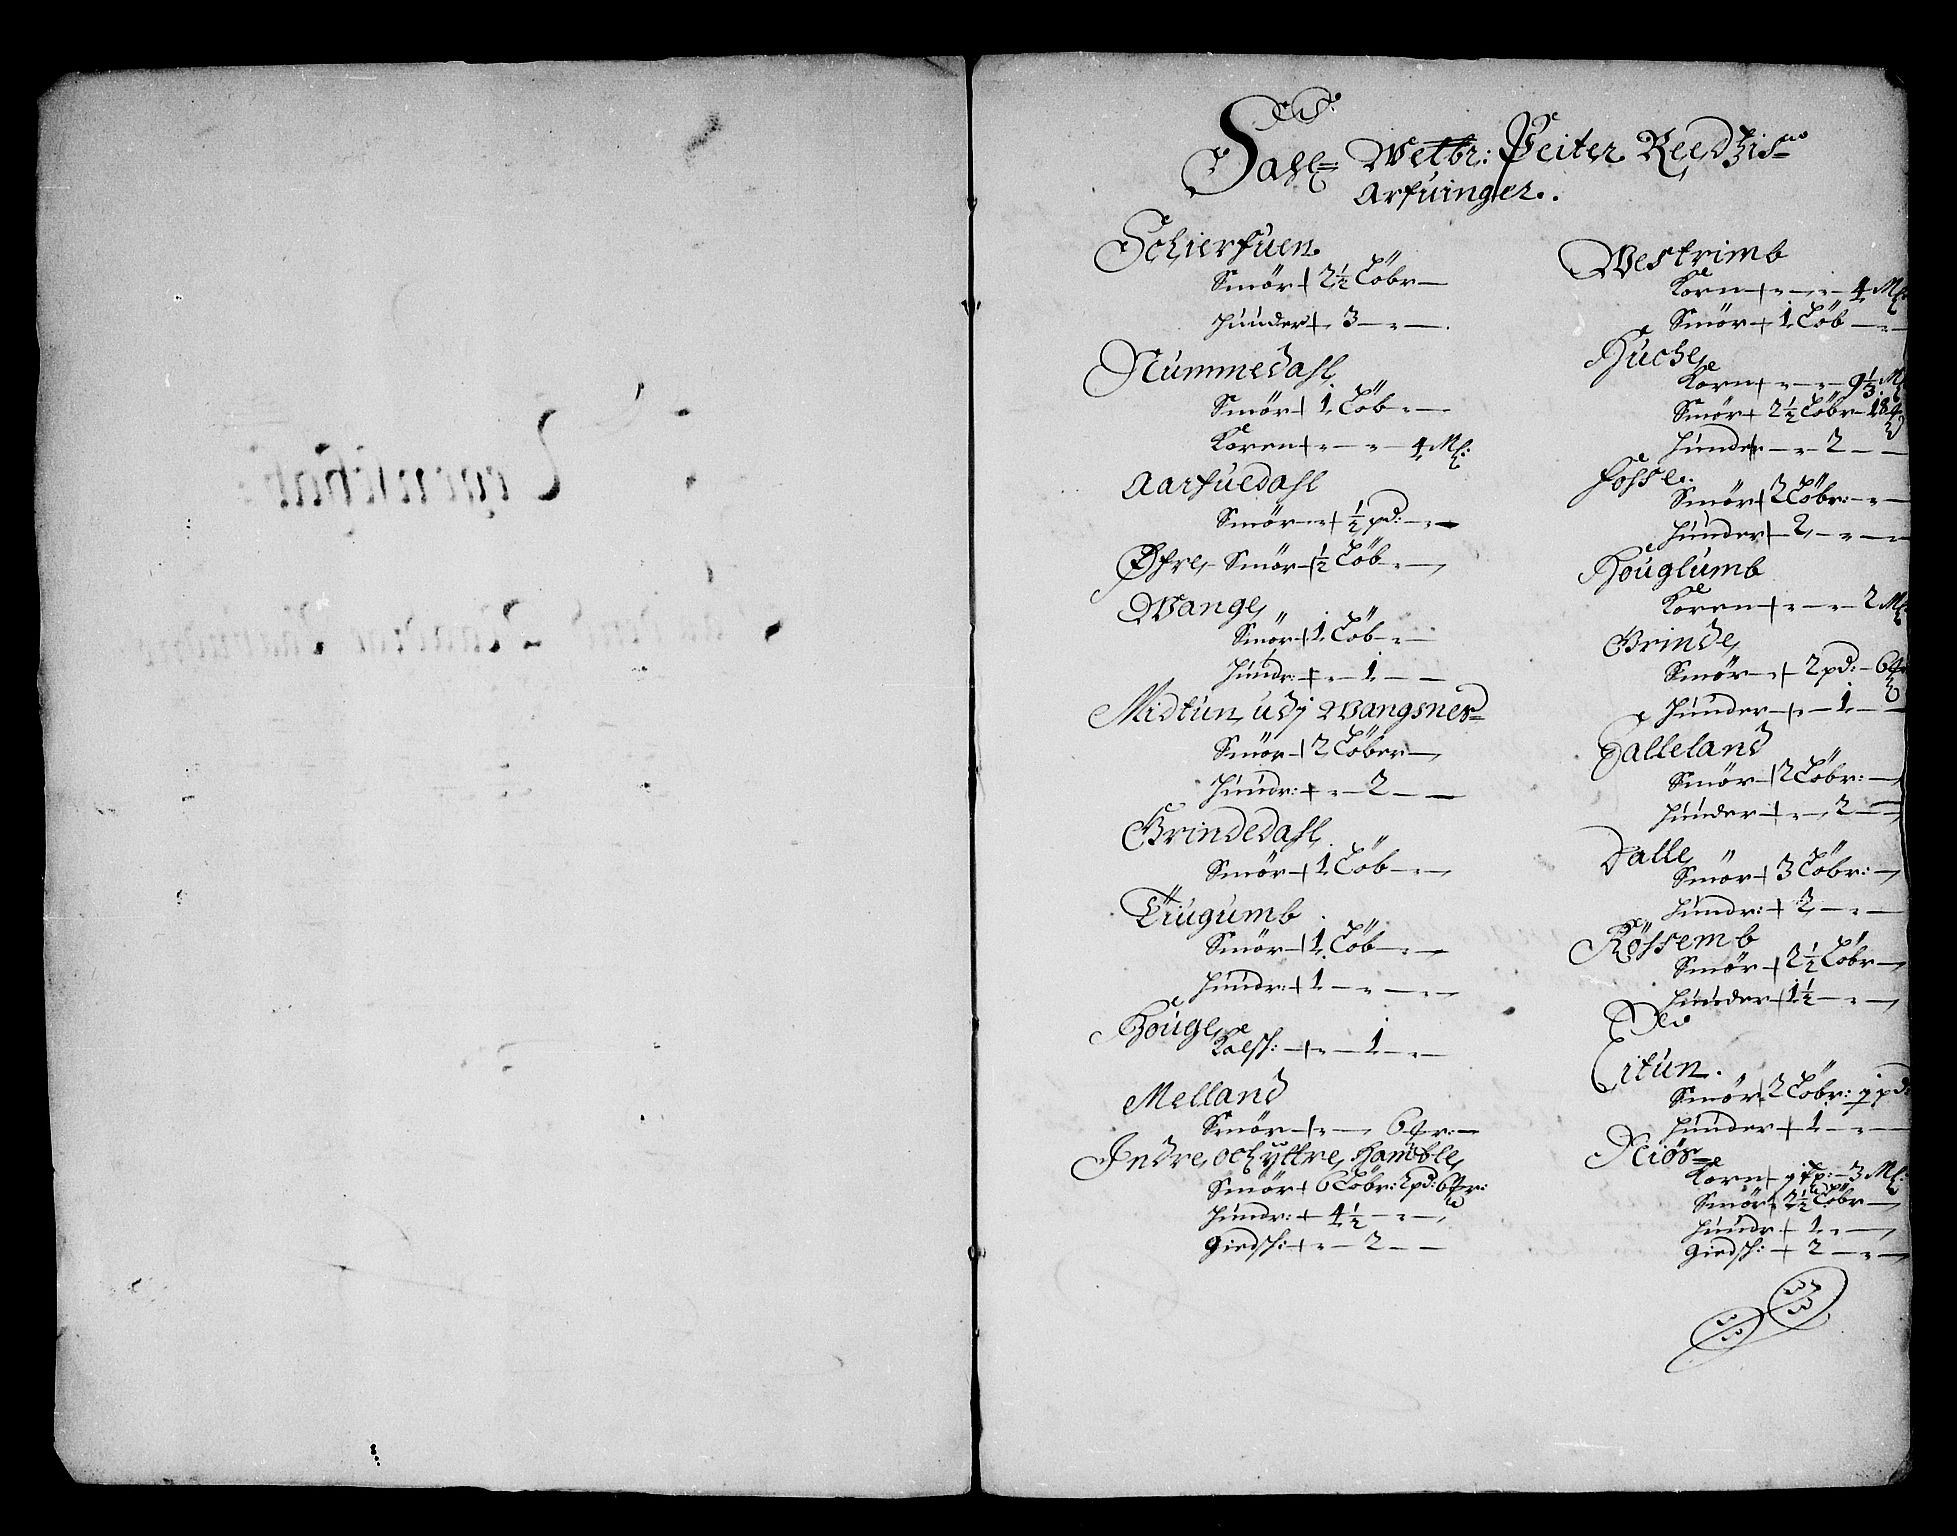 Sahl= Welbr: Peiter Reedzis=
Arfuinger.
Schierfuen
Smör 2½ Löbr
Huuder 3
Nummedahl
Smör 1 Löb
Koren 4 Ml:
Aarfuedahl
Smör ½ pd:
Øfre Smör ½ Löb
Wange
Smör 1 Löb
Huudr: 1
Midtun udj Wangsnes=
Smör 2 Löber
Huudr: 2
Grindedahl
Smör 1 Löb
Tiugumb
Smör 1 Löb
Huudr: 1
Houge
Kalfsh: 1
Melland
Smör 6 mr:
Indre och yttre Hamble
Smör 6 Löbr: 2 pd: 6 mr:
Huudr: 4½
Giedsh: 2
Westrimb
Korn 4 Ml
Smör 1 Löb
Huche
Korn 9⅓ Ml
Smör 2½ Löbr 18
Huuder 2
Fosse
Smör 2 Löbr:
Huuder 2
Houglumb
Koren 2 Ml
Grinde
Smör 2 pd: 6
Huuder 1
Falleland
Smör 2 Löbr:
Huuder 2
Dalle
Smör 3 Löbr:
Huudr: 3
Rössemb
Smör 2½ Löbr
Huuder 1½
Eitun
Smör 2 Löbr: 1 pd:
Huuder 1
Niös=
Korn 3 Ml:
Smör 2½ Löbr
Huudr 1
Giedsh: 2